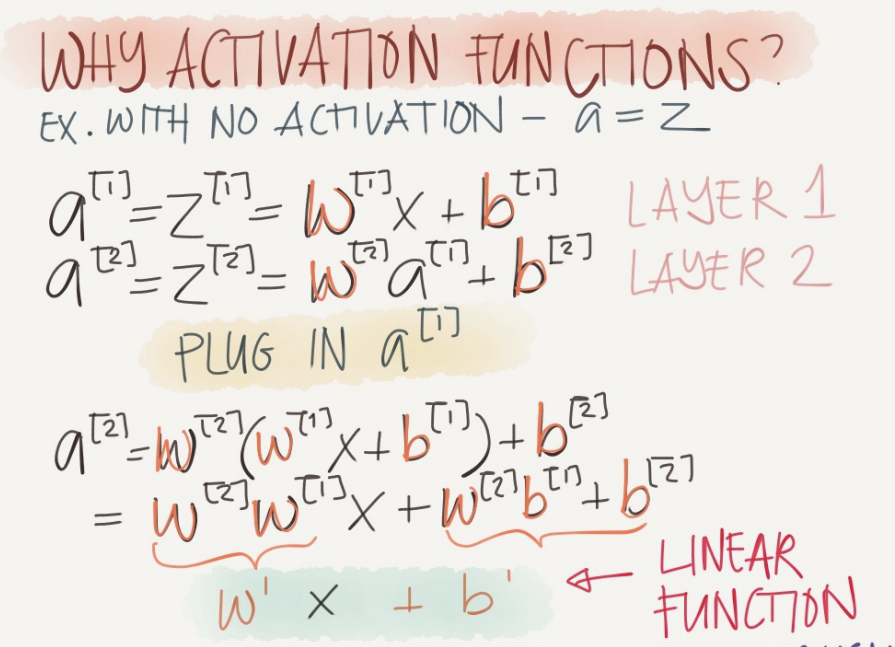 WHY ACTIVATION FUNCTIONS?
EX. WITH NO ACTIVATION - a = z
a[1] = z[1] = w[1] x + b[1] LAYER 1
a[2] = z[2] = w[2] a[1] + b[2] LAYER 2
PLUG IN a[1]
a[2] = w[2] (w[1] x + b[1]) + b[2]
= w[2] w[1] x + w[2] b[1] + b[2]
w' x + b' ← LINEAR
FUNCTION